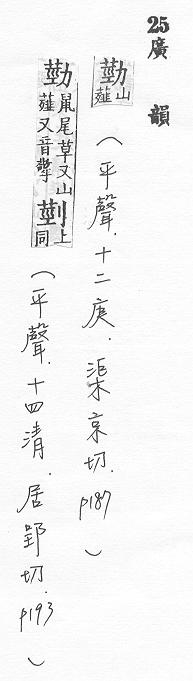 25廣 韻
葝山薤(平聲.十二庚.渠京切.p187)
葝鼠尾草又山薤又音擎上同(平聲.十四清.居郢切.p193)